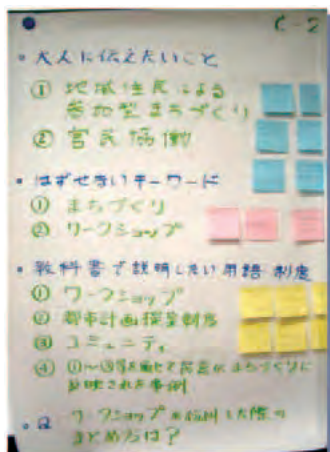 C-2
・大人に伝えたいこと
① 地域住民による
参加型まちづくり
② 官民協働
・はずせないキーワード
① まちづくり
② ワークショップ
・教科書で説明したい用語 制度
① ワークショップ
② 都市計画提案制度
③ コミュニティ
④ ①〜③等を通じて民意がまちづくりに
反映された事例
・Q ワークショップを した際の
まとめ方は?